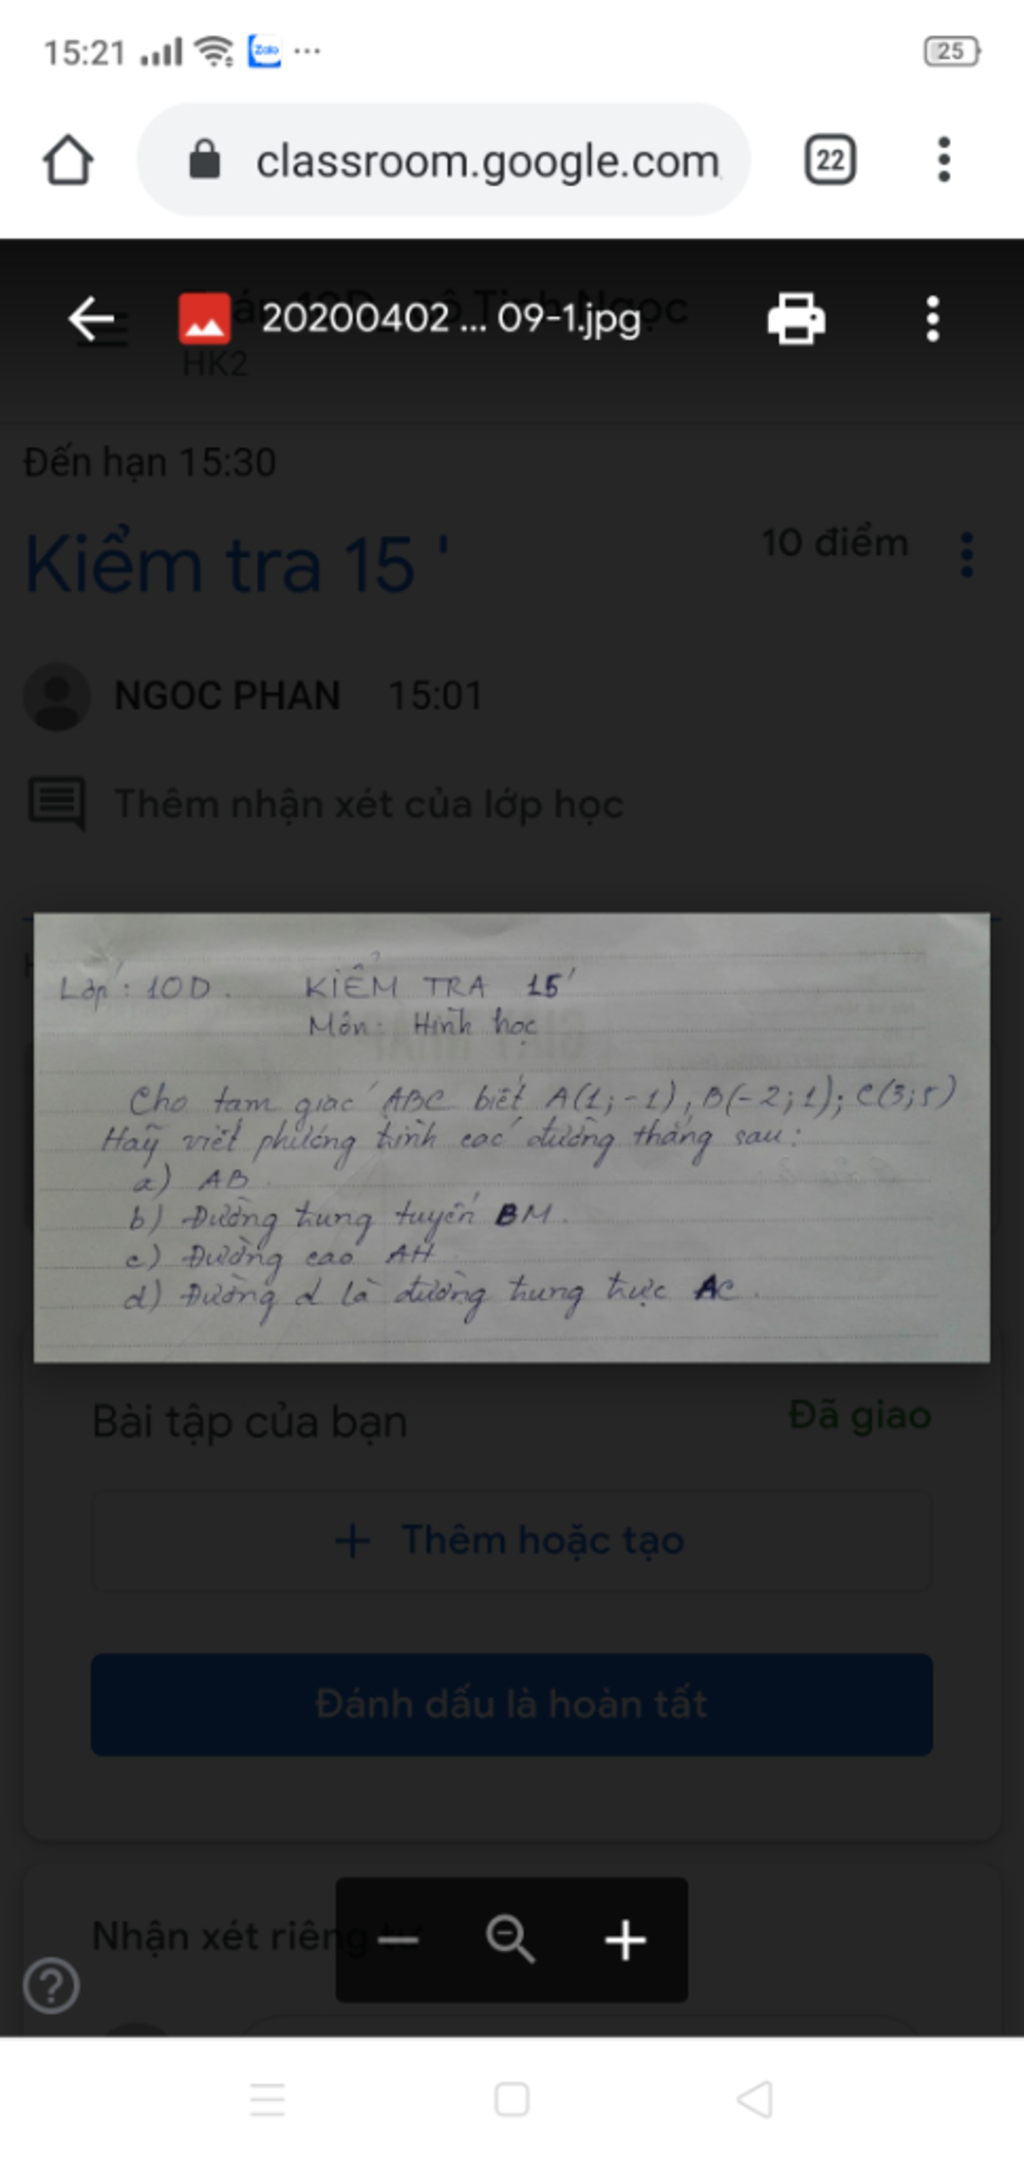 15:21 Zalo ... 25
classroom.google.com 22
20200402 ... 09-1.jpg
HK2
Đến hạn 15:30
Kiểm tra 15 '
10 điểm
NGOC PHAN 15:01
Thêm nhận xét của lớp học
Lớp : 10D. KIỂM TRA 15'
Môn: Hình học
Cho tam giác ABC biết A(1;-1), B(-2;1); C(3;5)
Hãy viết phương trình các đường thẳng sau:
a) AB
b) Đường trung tuyến BM.
c) Đường cao AH
d) Đường d là đường trung trực AC.
Bài tập của bạn
Đã giao
+ Thêm hoặc tạo
Đánh dấu là hoàn tất
Nhận xét riêng tư